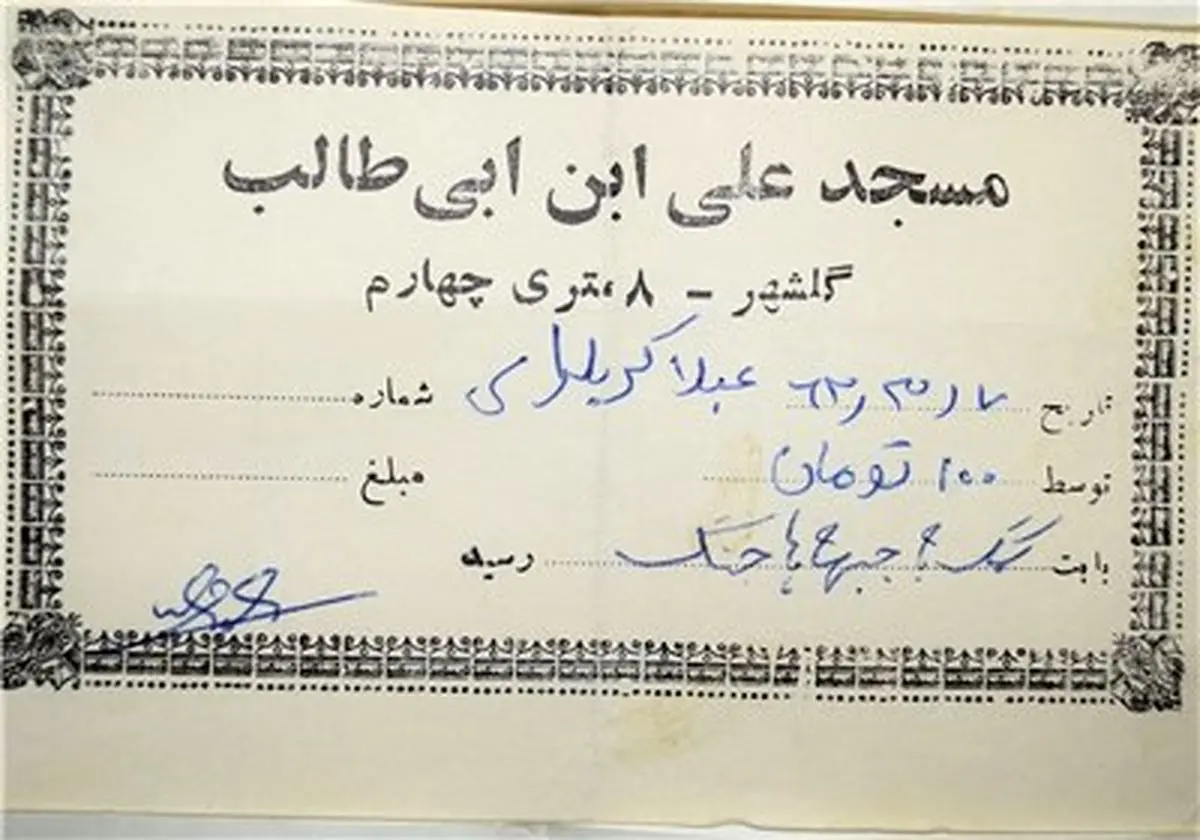 مسجد علی ابن ابی طالب
گلشهر - ۸ متری چهارم
تاریخ ۶۳ر۳ر۱۷ شماره
توسط ۱۰۰ تومان مبلغ
بابت کمک به جبهه های جنگ رسید